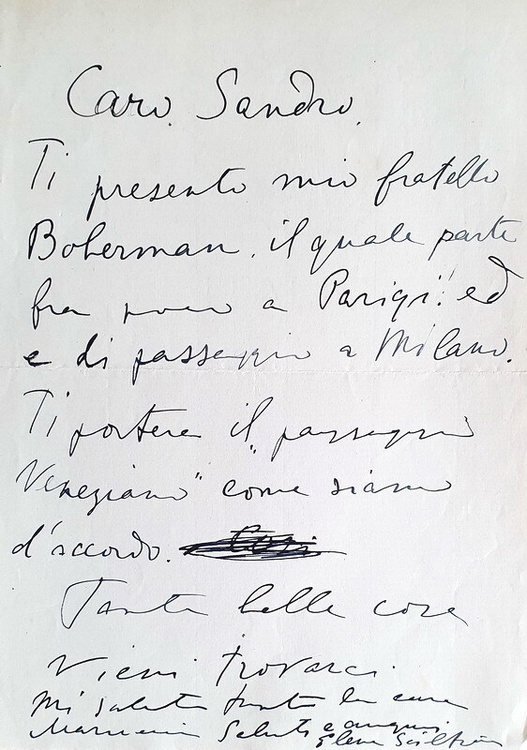 Caro Sandro.
Ti presento mio fratello
Boherman. il quale parte
fra poco a Parigi. ed
e di passaggio a Milano.
Ti portera il "paesaggio
Veneziano" come siamo
d'accordo.
Tante belle cose
Vieni trovarci
Mi saluta tanto la cara
Saluti e auguri
Elena